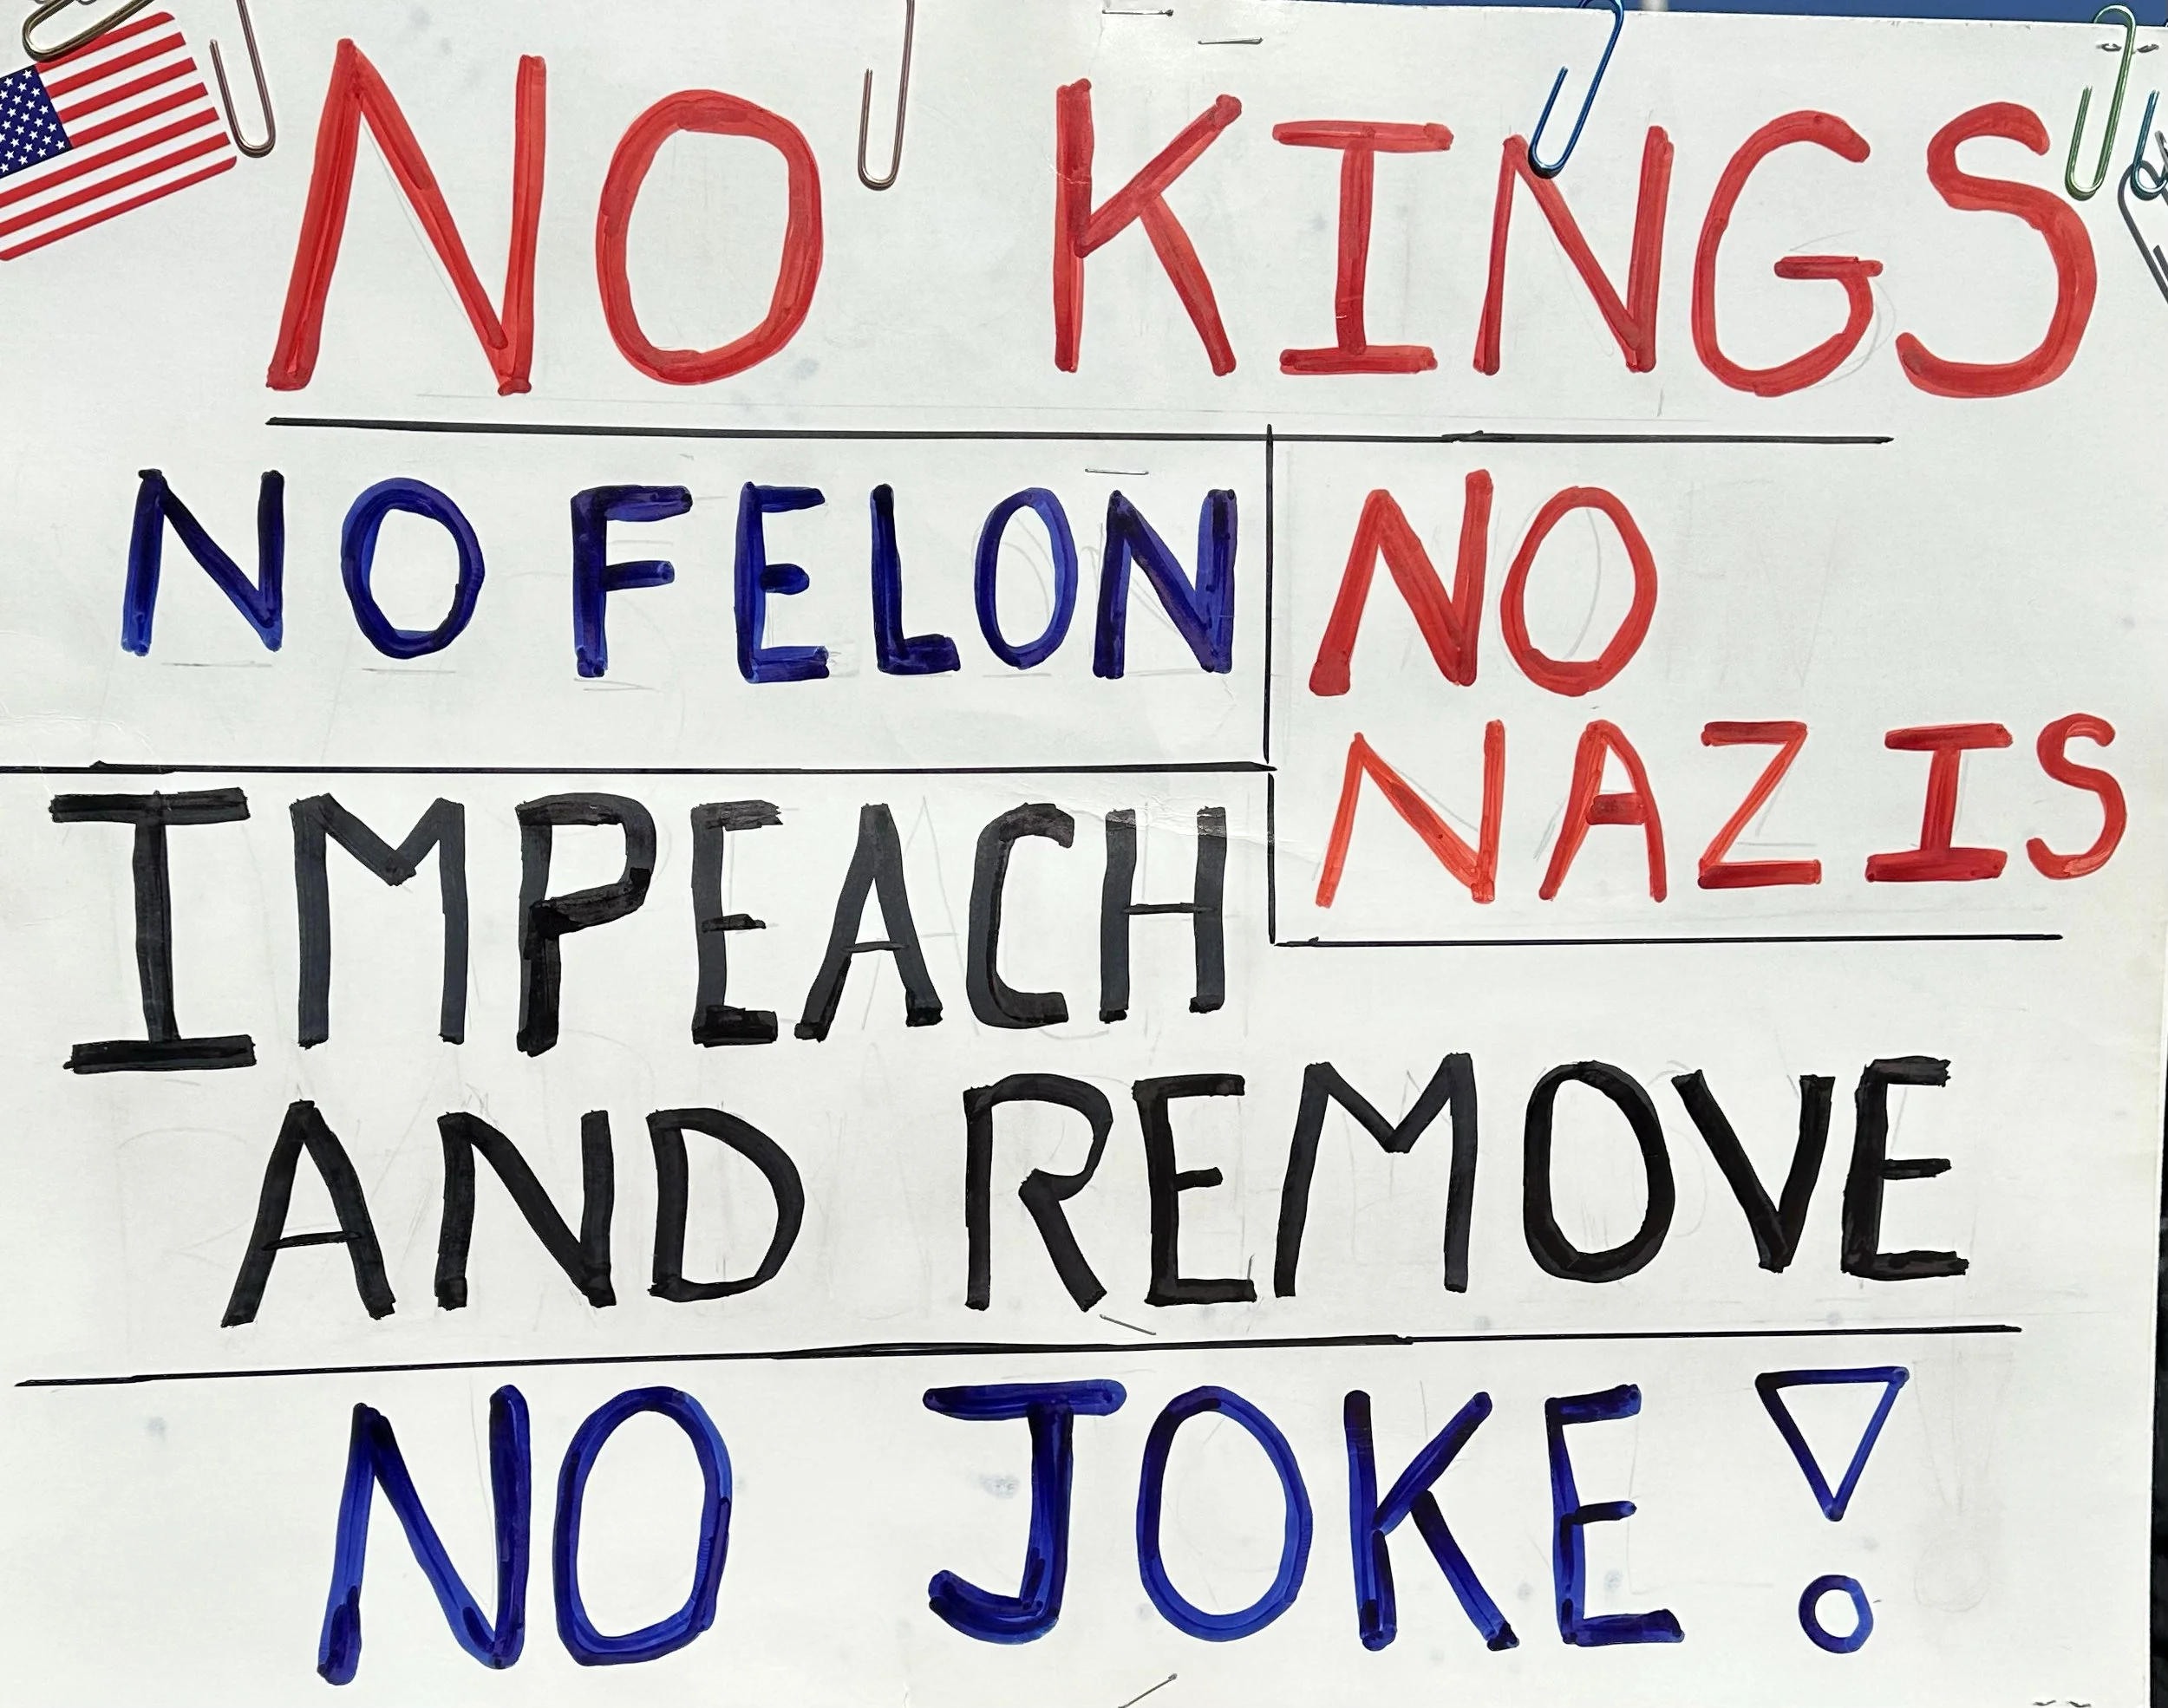 NO KINGS
NO FELON
NO
NAZIS
IMPEACH
AND REMOVE
NO JOKE!